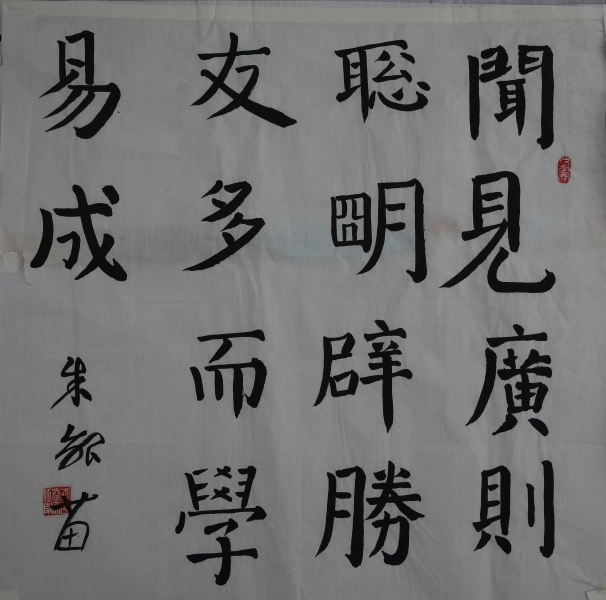 聞見廣則
聡明辟勝
友多而學
易成
朱能苗